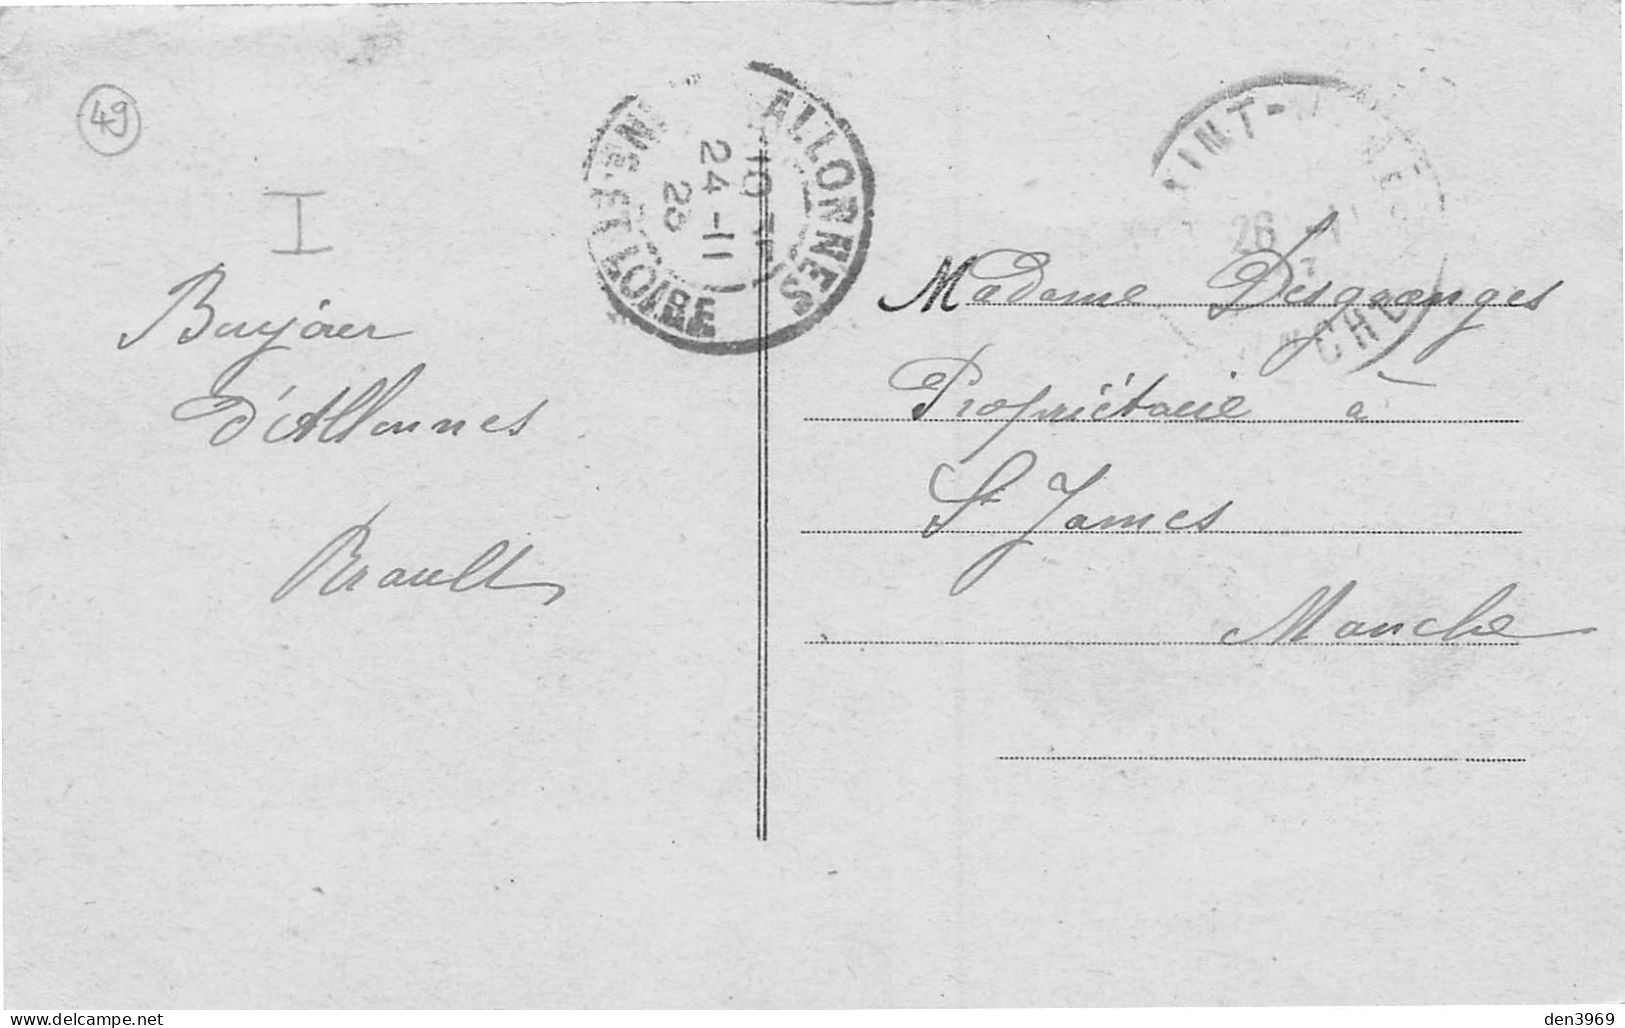 49
I
Bonjour
d'Allonnes
Brault
ALLONNES
24-11
ET LOIRE
INT-
26
CHE
Madame Desgranges
Propriétaire à
St James
Manche
den3969
www.delcampe.net